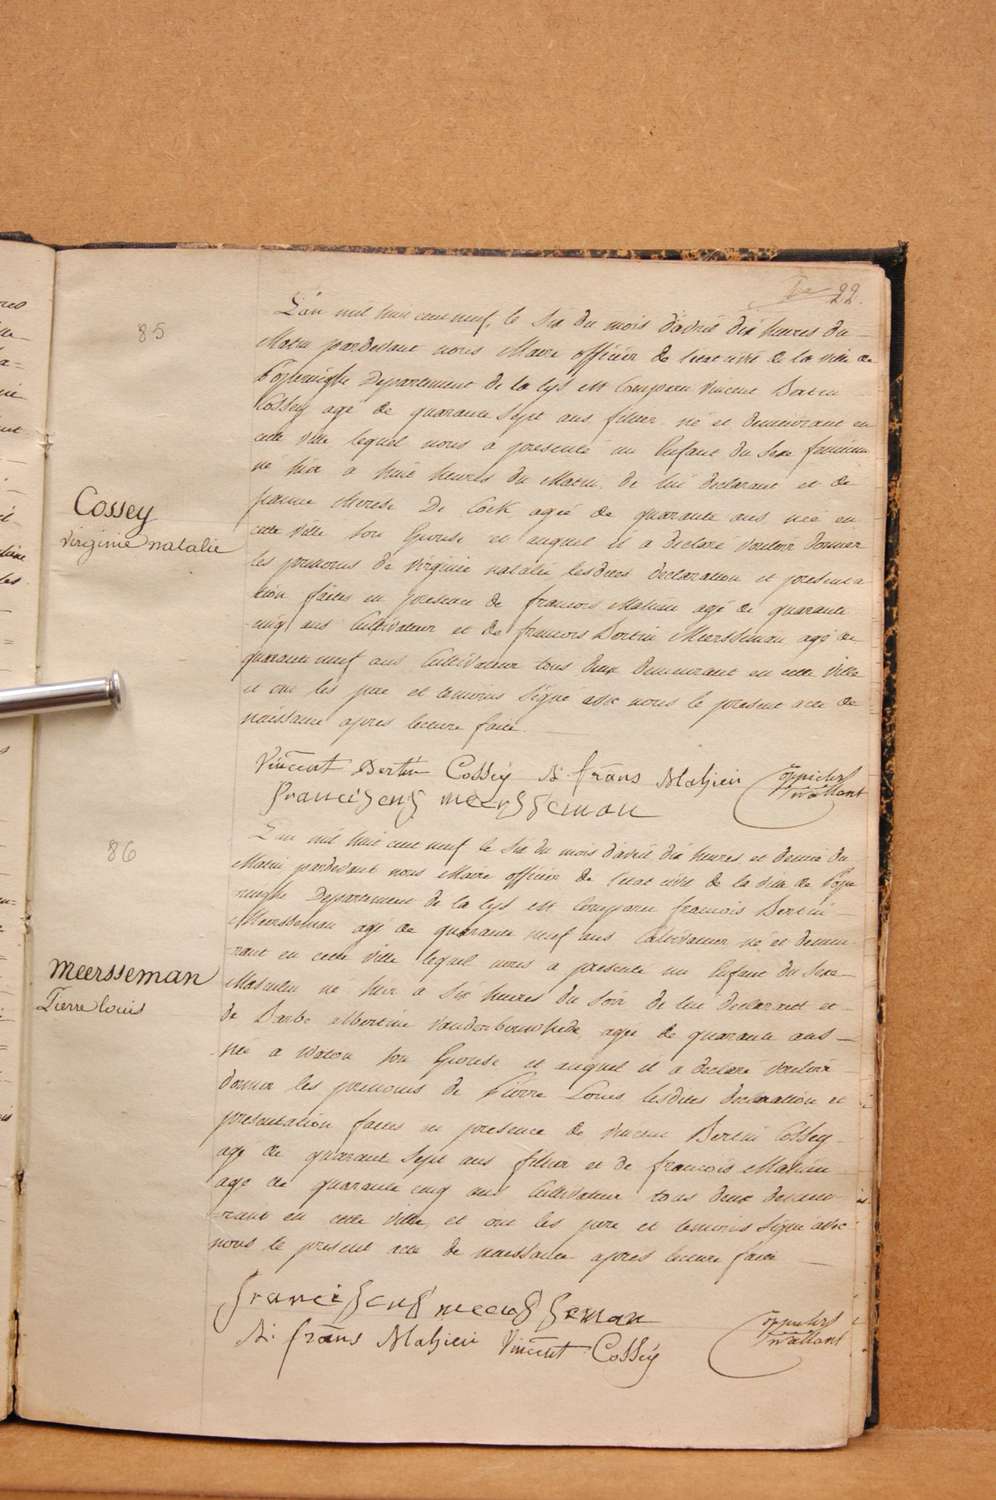 22.
85
L'an mil huit cent neuf, le six du mois d'avril dix heures du
Matin pardevant nous Maire officier de l'état civil de la ville de
Poperinghe Departement de la Lys est Comparu Vincent Bertin
Cossey agé de quarante sept ans filtier né et demeurant en
cette ville lequel nous a presenté un Enfant du Sexe feminin
né hier a huit heures du Matin, de lui declarant et de
jeanne therese De Cock agée de quarante ans née en
cette ville son Epouse et auquel il a declaré vouloir donner
les prenoms de Virginie natalie, lesdites declaration et presenta
tion faites en presence de francois Mahieu agé de quarante
cinq ans Cultivateur et de francois Bertin Meersseman agé de
quarante neuf ans Cultivateur tous deux demeurant en cette ville
et ont les pere et temoins signé avec nous le present acte de
naissance apres lecture faite.
Cossey
Virginie natalie
Vincent Bertin Cossey frans Mahieu
franciscus meersseman
86
L'an mil huit cent neuf le six du mois d'avril dix heures et demie du
Matin pardevant nous Maire officier de l'état civil de la ville de Pope
ringhe Departement de la Lys est Comparu francois Bertin
Meersseman agé de quarante neuf ans Cultivateur né et demeu
rant en cette ville lequel nous a presenté un Enfant du Sexe
Masculin né hier a six heures du soir de lui declarant et
de Barbe albertine agée de quarante ans
née a Watou son Epouse et auquel il a declaré vouloir
donner les prenoms de Pierre Louis lesdites declaration et
presentation faites en presence de Vincent Bertin Cossey
agé de quarante sept ans filtier et de francois Mahieu
agé de quarante cinq ans Cultivateur tous deux demeu
rant en cette ville, et ont les pere et temoins signé avec
nous le present acte de naissance apres lecture faite
meersseman
Pierre louis
franciscus meersseman
frans Mahieu Vincent Cossey